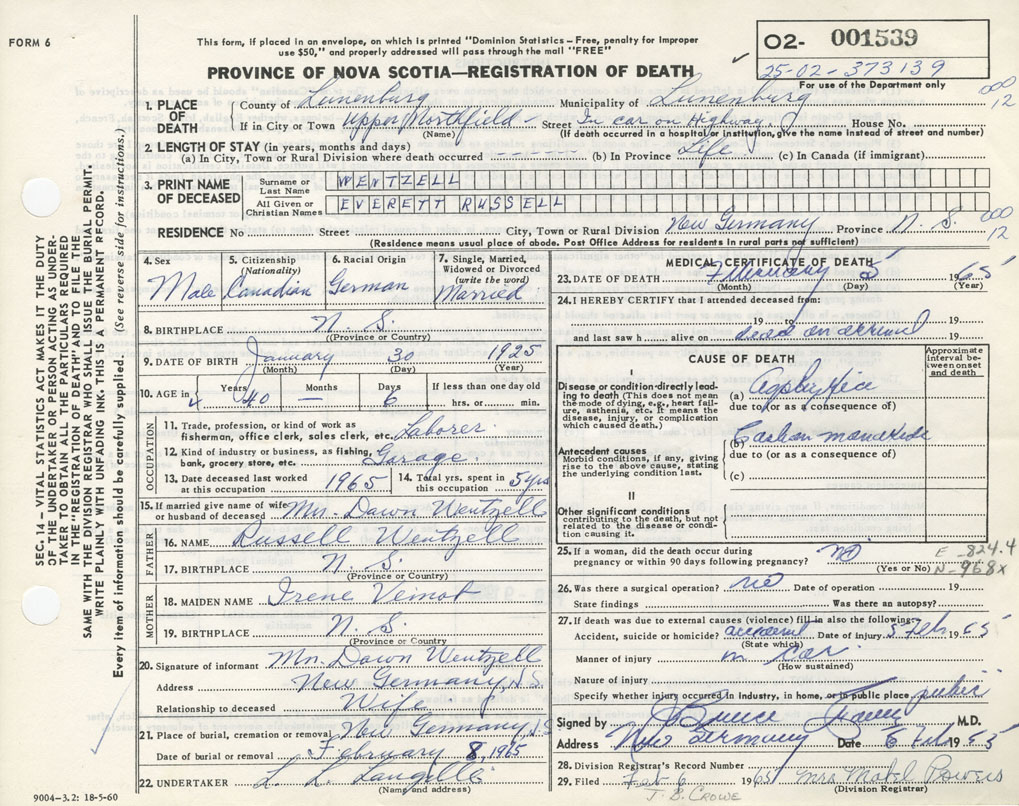 FORM 6
This form, if placed in an envelope, on which is printed "Dominion Statistics – Free, penalty for improper
use $50," and properly addressed will pass through the mail "FREE"
PROVINCE OF NOVA SCOTIA—REGISTRATION OF DEATH
02- 001539
25-02-373139
For use of the Department only
000
12
1. PLACE OF DEATH
County of Lunenburg Municipality of Lunenburg
If in City or Town Upper Northfield - Street In car on Highway. House No.
(Name) (If death occurred in a hospital or institution, give the name instead of street and number)
2. LENGTH OF STAY (in years, months and days)
(a) In City, Town or Rural Division where death occurred - - - - - (b) In Province Life (c) In Canada (if immigrant)
3. PRINT NAME OF DECEASED
Surname or Last Name WENTZELL
All Given or Christian Names EVERETT RUSSELL
RESIDENCE No. Street City, Town or Rural Division New Germany Province N. S.
000
12
(Residence means usual place of abode. Post Office Address for residents in rural parts not sufficient)
4. Sex Male
5. Citizenship (Nationality) Canadian
6. Racial Origin German
7. Single, Married, Widowed or Divorced (write the word) Married
8. BIRTHPLACE N. S.
(Province or Country)
9. DATE OF BIRTH January 30 1925
(Month) (Day) (Year)
10. AGE in Years 40 Months — Days 6 If less than one day old hrs. or min.
OCCUPATION
11. Trade, profession, or kind of work as fisherman, office clerk, sales clerk, etc. Laborer
12. Kind of industry or business, as fishing, bank, grocery store, etc. Garage.
13. Date deceased last worked at this occupation 1965
14. Total yrs. spent in this occupation 5 yrs
15. If married give name of wife or husband of deceased Mrs. Dawn Wentzell
FATHER
16. NAME Russell Wentzell
17. BIRTHPLACE N. S.
(Province or Country)
MOTHER
18. MAIDEN NAME Irene Veinot
19. BIRTHPLACE N. S.
(Province or Country)
20. Signature of informant Mrs. Dawn Wentzell
Address New Germany, N.S.
Relationship to deceased Wife
21. Place of burial, cremation or removal New Germany N.S
Date of burial or removal February 8, 1965
22. UNDERTAKER L. L. Langille
(Name and address)
9004-3.2: 18-5-60
MEDICAL CERTIFICATE OF DEATH
23. DATE OF DEATH February 5 1965
(Month) (Day) (Year)
24. I HEREBY CERTIFY that I attended deceased from:
19 to 19
and last saw h alive on dead on arrival 19
CAUSE OF DEATH
Approximate interval between onset and death
I
Disease or condition directly leading to death (This does not mean the mode of dying, e.g., heart failure, asthenia, etc. It means the disease, injury, or complication which caused death.)
(a) Asphyxia
due to (or as a consequence of)
Antecedent causes
Morbid conditions, if any, giving rise to the above cause, stating the underlying condition last.
(b) Carbon monoxide
due to (or as a consequence of)
(c)
II
Other significant conditions
contributing to the death, but not related to the disease or condition causing it.
25. If a woman, did the death occur during pregnancy or within 90 days following pregnancy? no
(Yes or No)
E -824.4
N-968x
26. Was there a surgical operation? no Date of operation 19
State findings Was there an autopsy?
27. If death was due to external causes (violence) fill in also the following:
Accident, suicide or homicide? accident Date of injury 5 Feb 1965
(State which)
Manner of injury in car
(How sustained)
Nature of injury
Specify whether injury occurred in Industry, in home, or in public place public
Signed by Bruce M.D.
Address New Germany Date 6 Feb 1965
28. Division Registrar's Record Number
29. Filed Feb 6 1965 Mrs Mabel Powers
(Division Registrar)
J. B. CROWE
SEC. 14 – VITAL STATISTICS ACT MAKES IT THE DUTY
OF THE UNDERTAKER OR PERSON ACTING AS UNDER-
TAKER TO OBTAIN ALL THE PARTICULARS REQUIRED
IN THE "REGISTRATION OF DEATH" AND TO FILE THE
SAME WITH THE DIVISION REGISTRAR WHO SHALL ISSUE THE BURIAL PERMIT.
WRITE PLAINLY WITH UNFADING INK. THIS IS A PERMANENT RECORD.
Every item of information should be carefully supplied. (See reverse side for instructions.)